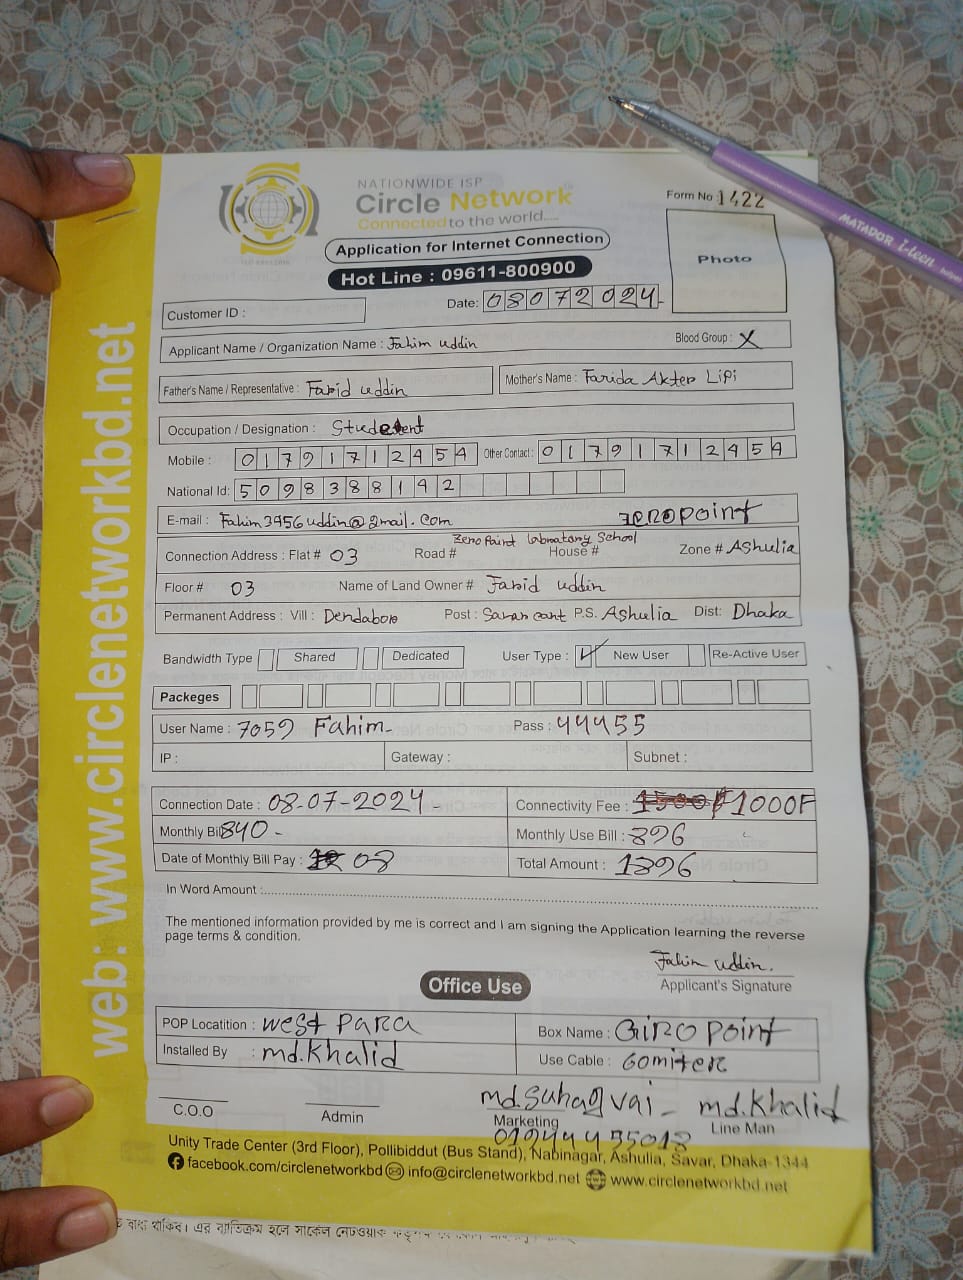 NATIONWIDE ISP
Circle Network
Connected to the world.....
Form No 1422
Application for Internet Connection
Photo
Hot Line : 09611-800900
Date: 08072024
Customer ID :
Applicant Name / Organization Name : Fahim uddin Blood Group : X
Father's Name / Representative : Farid uddin Mother's Name : Farida Akter Lipi
Occupation / Designation : Student
Mobile : 01791712454 Other Contact : 01791712454
National Id: 5098388142
E-mail : Fahim3456uddin@gmail.com zeropoint
Zero Point Labratory School
Connection Address : Flat # 03 Road # House # Zone # Ashulia
Floor # 03 Name of Land Owner # Farid uddin
Permanent Address : Vill : Dendabor Post : Savar cant P.S. Ashulia Dist: Dhaka
Bandwidth Type Shared Dedicated User Type : New User Re-Active User
Packeges
User Name : 7059 Fahim- Pass : 44455
IP : Gateway : Subnet :
Connection Date : 08-07-2024- Connectivity Fee : 1500 1000F
Monthly Bill 840- Monthly Use Bill : 896
Date of Monthly Bill Pay : 08 Total Amount : 1896
In Word Amount :
The mentioned information provided by me is correct and I am signing the Application learning the reverse
page terms & condition.
Fahim uddin.
Applicant's Signature
Office Use
POP Locatition : west PaRa Box Name : GiRo Point
Installed By : md.Khalid Use Cable : 60miteR
md.Suhag vai- md.Khalid
C.O.O Admin Marketing Line Man
Unity Trade Center (3rd Floor), Pollibiddut (Bus Stand), Nabinagar, Ashulia, Savar, Dhaka-1344
facebook.com/circlenetworkbd info@circlenetworkbd.net www.circlenetworkbd.net
web: www.circlenetworkbd.net
MATADOR i-teen
বাধ্য থাকিব। এর ব্যতিক্রম হলে সার্কেল নেটওয়ার্ক